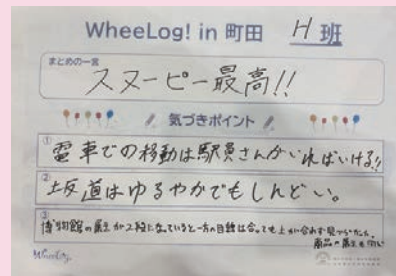 WheeLog! in 町田 H 班
まとめの一言
スヌーピー最高!!
気づきポイント
① 電車での移動は駅員さんがいればいける!!
② 坂道はゆるやかでもしんどい。
③ 博物館の展示が2段になっていると一方の目線は合っても上が合わず見づらかった。
商品の展示も同じ
WheeLog!